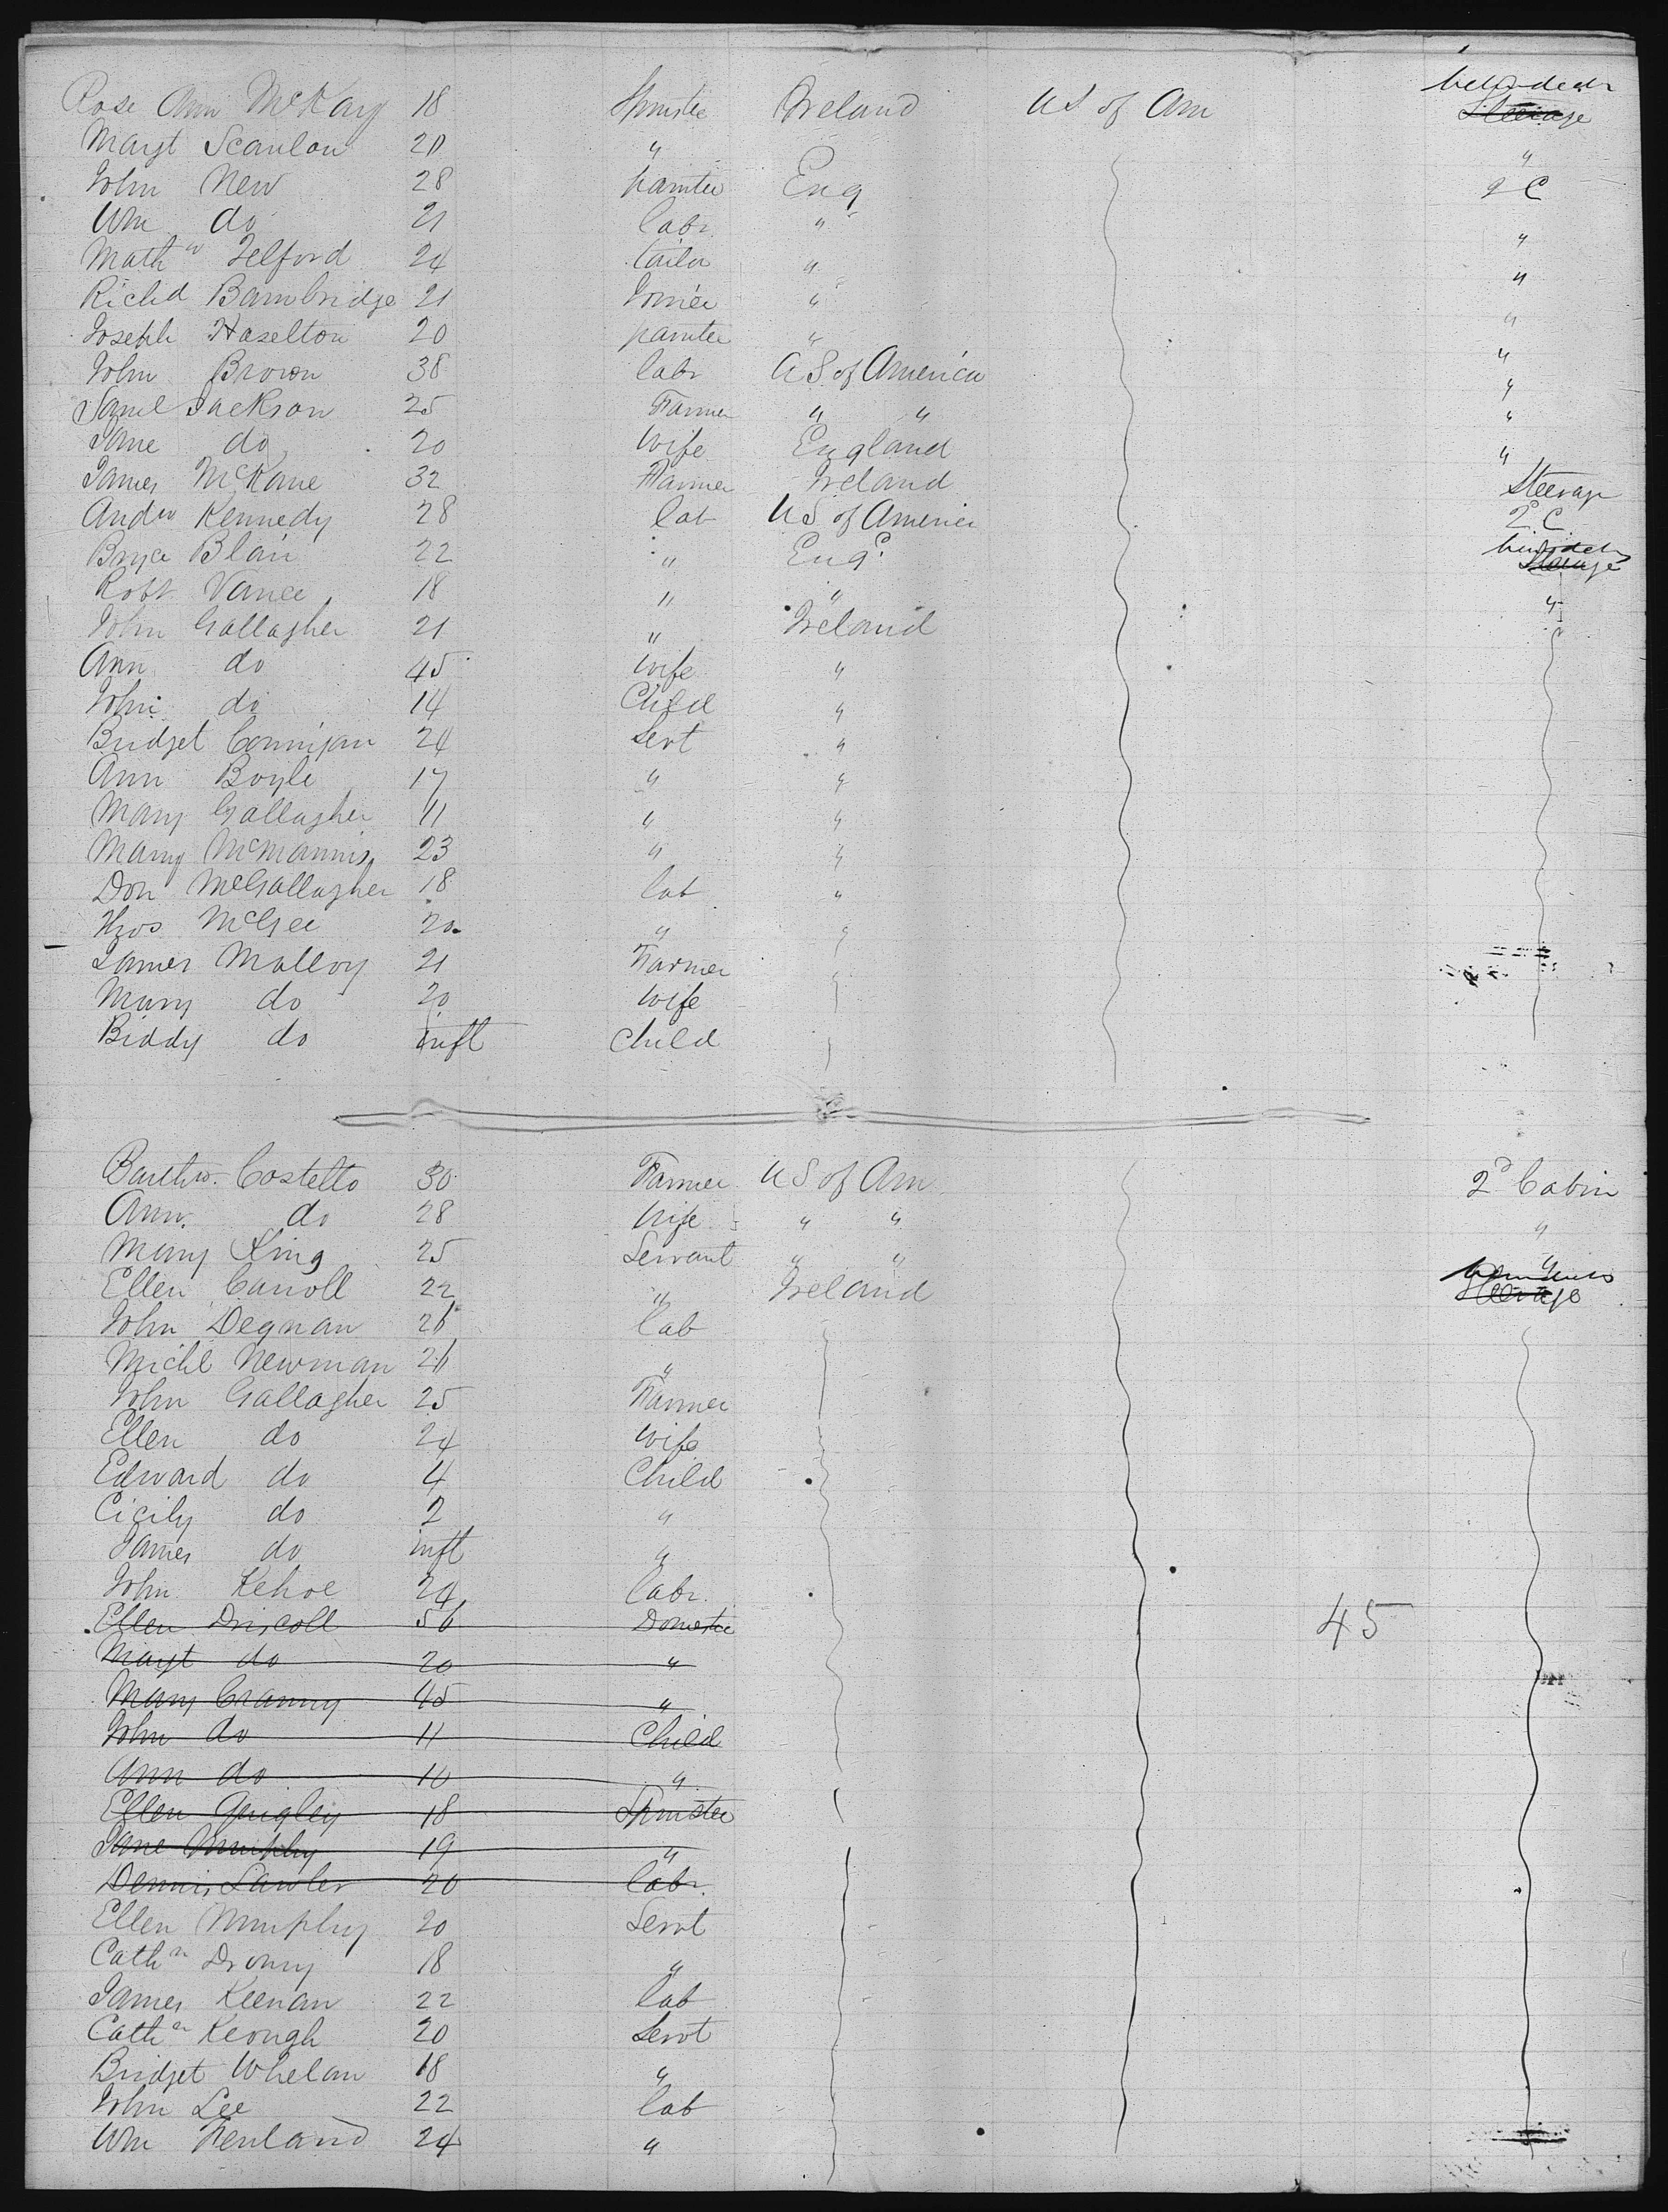 Rose Ann McKay 18 Spinster Ireland US of Am between decks Steerage
Margt Scanlon 20 " "
John New 28 painter Eng 2 C
Wm do 21 labr " "
Mathw Telford 24 tailor " "
Richd Bambridge 21 Joiner " "
Joseph Haselton 20 painter " "
John Brown 38 labr US of America "
Saml Jackson 25 Farmer " " "
Jane do 20 Wife England "
James McKane 32 Farmer Ireland Steerage
Andw Kennedy 28 lab US of America 2d C
Bryce Blair 22 " Engd between decks Steerage
Robt Vance 18 " " "
John Gallagher 21 " Ireland
Ann do 45 Wife "
John do 14 Child "
Bridget Connigan 24 Servt "
Ann Boyle 17 " "
Mary Gallagher 11 " "
Mary McMannis 23 " "
Don McGallagher 18 lab "
Thos McGee 20 " "
James Malloy 21 Farmer
Mary do 20 Wife
Biddy do inft Child
Barthw. Costello 30 Farmer US of Am 2d Cabin
Ann do 28 Wife " " "
Mary King 25 Servant " " "
Ellen Carroll 22 " Ireland Steerage
John Degnan 26 lab
Michl Newman 26 "
John Gallagher 25 Farmer
Ellen do 24 Wife
Edward do 4 Child
Cicily do 2 "
James do inft "
John Kehoe 24 labr.
Ellen Driscoll 56 Domestic 45
Margt do 20 "
Mary Cranny 45 "
John do 11 Child
Ann do 10 "
Ellen Quigley 18 Spinster
Jane Murphy 19 "
Dennis Lawler 20 labr.
Ellen Murphy 20 Servt
Cathn Drony 18 "
James Keenan 22 lab
Cathn Keough 20 Servt
Bridget Whelan 18 "
John Lee 22 lab
Wm Henland 24 "